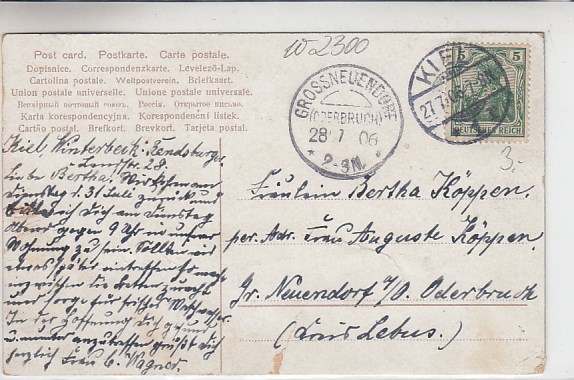 w 2300
Post card. Postkarte. Carte postale.
Dopisnice. Correspondenzkarte. Levelező-Lap.
Cartolina postale. Weltpostverein. Briefkaart.
Union postale universelle. Unione postale universale.
Всемірный почтовый союзъ. Россія. Открытое письмо.
Karta korespondencyjna. Korespondenční lístek.
Cartão postal. Brefkort. Brevkort. Tarjeta postal.
GROSSNEUENDORF
(ODERBRUCH)
28 7 06
2-3N.
KIEL
27.7.06
5
DEUTSCHES REICH
3.-
Kiel Winterbeck: Rendsburger
Landstr. 28.
Liebe Bertha! Wir kehren am
Dienstag d. 31 Juli zurück und
bitte ich Dich am Dienstag
Abend gegen 9 Uhr in unsrer
Wohnung zu sein. Sollten wir
etwas später eintreffen so mache
inzwischen die Betten zurecht
und sorge für frisches Waschwasser.
In der Hoffnung Dich gesund
u. munter anzutreffen grüßt Dich
herzlich Frau E. Wagner.
Fräulein Bertha Köppen.
per. Adr. Frau Auguste Köppen
Gr. Neuendorf a/O. Oderbruch
(Kreis Lebus.)